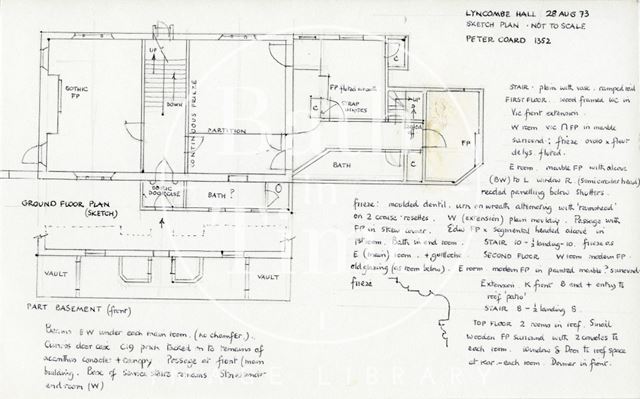 LYNCOMBE HALL 28 AUG 73
SKETCH PLAN - NOT TO SCALE
PETER COARD 1352
GOTHIC
FP
UP
DOWN
CONTINUOUS FRIEZE
PARTITION
FP fluted
STRAP
HINGES
C
C
UP
C
BATH
FP
DORIC
DOORCASE
BATH ?
GROUND FLOOR PLAN
(SKETCH)
VAULT
VAULT
PART BASEMENT (front)
Beams EW under each main room. (no chamfer).
Curious door case C19 pitch backed on to remains of
acanthus console + canopy Passage at front (main
building. Base of service stairs remains
end room (W)
STAIR - plain with vase ramped rail
FIRST FLOOR. wood framed vic in
Vic front extension.
W room vic FP in marble
surround; frieze ovolo + flower
detys. fluted.
E room. marble FP with alcove
(BW) to L window R. (semicircular head)
needed panelling below shutters.
frieze: moulded dentil. urn on wreath alternating with 'ramshead'
on 2 consoles rosettes. W (extension) plain moulding. Passage with
FP in skew corner. Edw FP + segmental headed alcove in
1st room. Bath in end room. STAIR 10-½ landing-10. frieze as
E (main) room. + guilloche. SECOND FLOOR W room modern FP
old glazing (as room below). E room modern FP in painted marble? surround
frieze
Extension. K front B and + entry to
'roof patio'
STAIR 8-½ landing 8.
TOP FLOOR 2 rooms in roof. Small
wooden FP surround with 2 consoles to
each room. Window & Door to roof space
at rear - each room. Dormer in front.